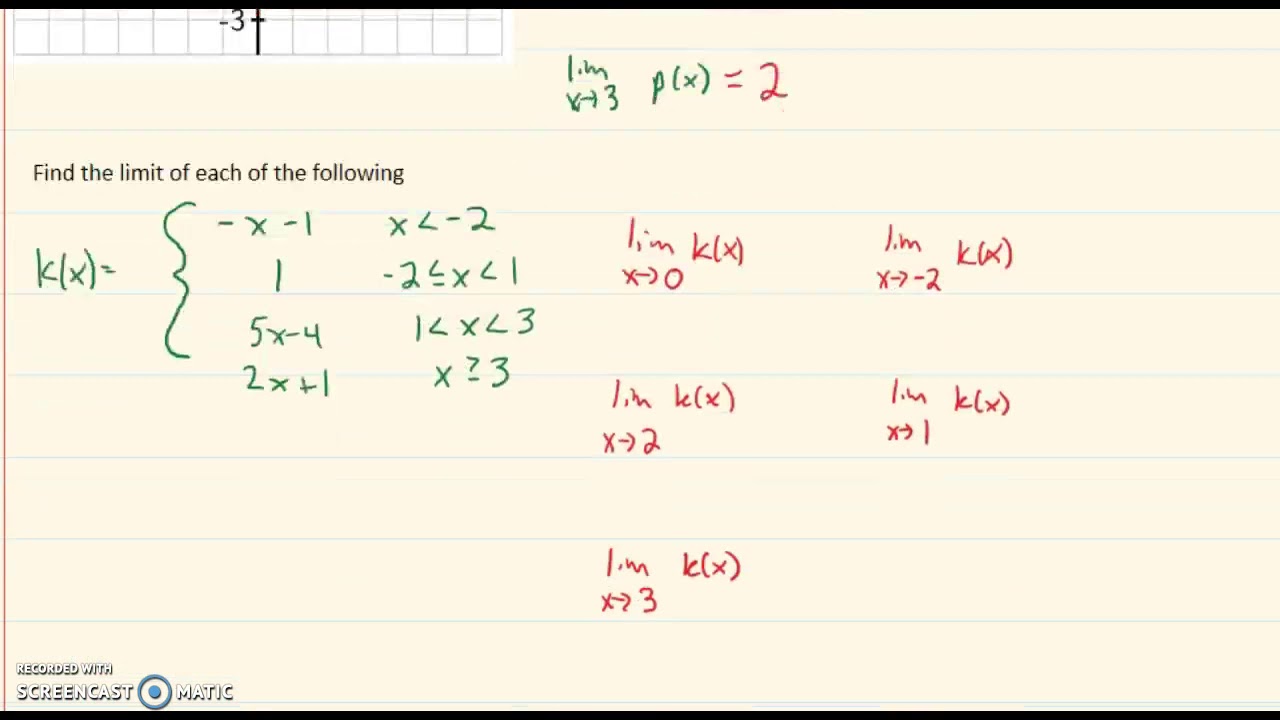 -3
lim p(x) = 2
x→3
Find the limit of each of the following
k(x)= { -x -1 x < -2
1 -2 ≤ x < 1
5x-4 1 < x < 3
2x+1 x ≥ 3
lim k(x)
x→0
lim k(x)
x→-2
lim k(x)
x→2
lim k(x)
x→1
lim k(x)
x→3
RECORDED WITH
SCREENCAST MATIC